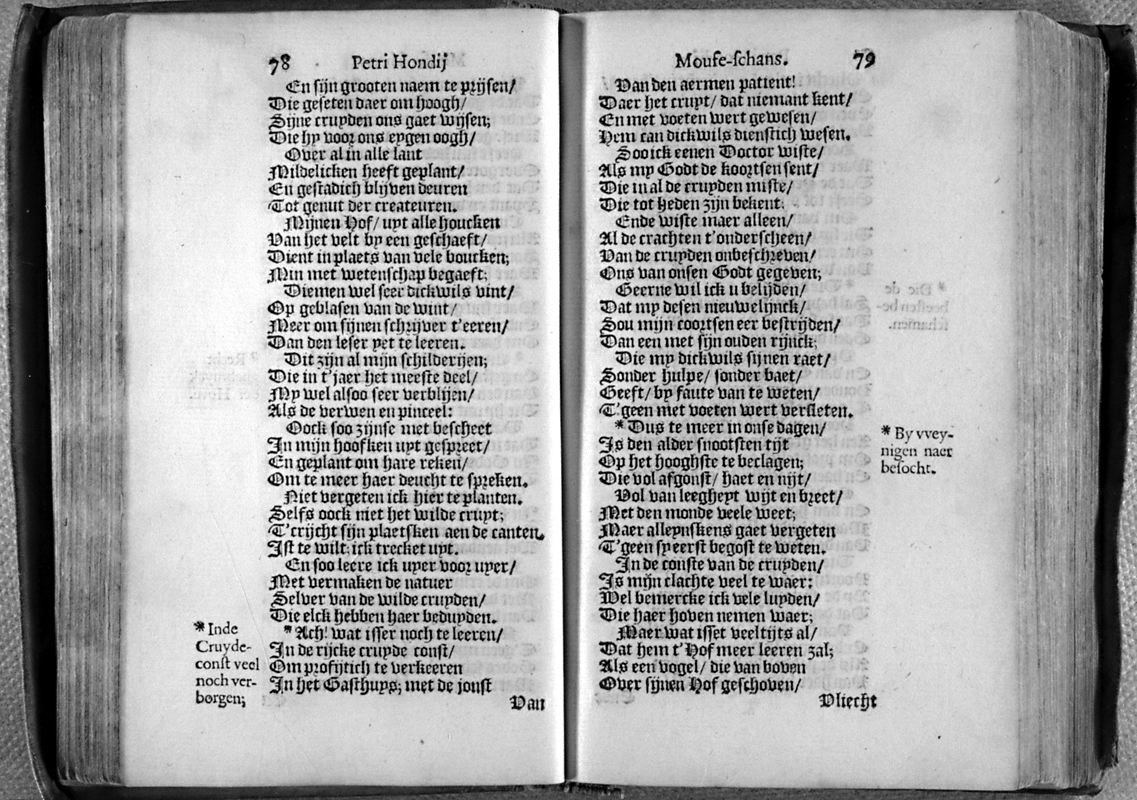 78 Petri Hondij
En sijn grooten naem te prijsen/
Die geseten daer om hoogh/
Sijne cruyden ons gaet wijsen;
Die hy voor ons eygen oogh/
Over al in alle lant
Mildelicken heeft geplant/
En gestadich blijven deuren
Tot genut der createuren.
Mijnen Hof/ uyt alle houcken
Van het velt by een geschaeft/
Dient in plaets van vele boucken;
Min met wetenschap begaeft;
Diemen wel seer dickwils vint/
Op geblasen van de wint/
Meer om sijnen schrijver t'eeren/
Dan den leser yet te leeren.
Dit zijn al mijn schilderijen;
Die in t'jaer het meeste deel/
My wel alsoo seer verblijen/
Als de verwen en pinceel:
Oock soo zijnse met bescheet
In mijn hoofken uyt gespreet/
En geplant om hare reken/
Om te meer haer deucht te spreken.
Niet vergeten ick hier te planten.
Selfs oock niet het wilde cruyt;
T'crijcht sijn plaetsken aen de canten.
Ist te wilt: ick trecket uyt.
En soo leere ick uyer voor uyer/
Met vermaken de natuer
Selver van de wilde cruyden/
Die elck hebben haer beduyden.
* Ach! wat isser noch te leeren/
In de rijcke cruyde const/
Om profijtich te verkeeren
In het Gasthuys; met de jonst
Van
* Inde
Cruyde-
const veel
noch ver-
borgen;
Mouse-schans. 79
Van den aermen patient!
Daer het cruyt/ dat niemant kent/
En met voeten wert gewesen/
Hem can dickwils dienstich wesen.
Soo ick eenen Doctor wiste/
Als my Godt de koortsen sent/
Die in al de cruyden miste/
Die tot heden zijn bekent;
Ende wiste maer alleen/
Al de crachten t'onderscheen/
Van de cruyden onbeschreven/
Ons van onsen Godt gegeven;
Geerne wil ick u belijden/
Dat my desen nieuwelijnck/
Sou mijn coortsen eer bestrijden/
Dan een met sijn ouden rijnck;
Die my dickwils sijnen raet/
Sonder hulpe/ sonder baet/
Geeft/ by faute van te weten/
T'geen met voeten wert versleten.
* Dus te meer in onse dagen/
Is den alder snootsten tijt
Op het hooghste te beclagen;
Die vol afgonst/ haet en nijt/
Vol van leegheyt wijt en breet/
Met den monde veele weet;
Maer alleynskens gaet vergeten
T'geen sy eerst begost te weten.
In de conste van de cruyden/
Is mijn clachte veel te waer:
Wel bemercke ick vele luyden/
Die haer hoven nemen waer;
Maer wat isset veeltijts al/
Dat hem t'Hof meer leeren zal;
Als een vogel/ die van boven
Over sijnen Hof geschoven/
Vliecht
* By vvey-
nigen naer
besocht.